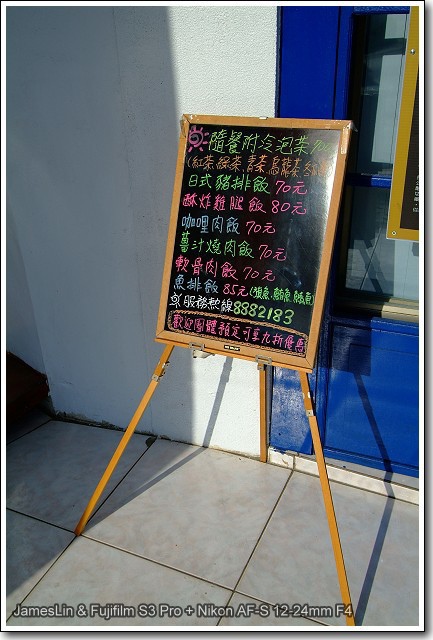 隨餐附冷泡茶700cc
(紅茶.綠茶.青茶.烏龍茶.
日式豬排飯70元
酥炸雞腿飯80元
咖哩肉飯70元
薑汁燒肉飯70元
軟骨肉飯70元
魚排飯85元
服務熱線8882183
歡迎團體預定可享九折優惠
JamesLin & Fujifilm S3 Pro + Nikon AF-S 12-24mm F4